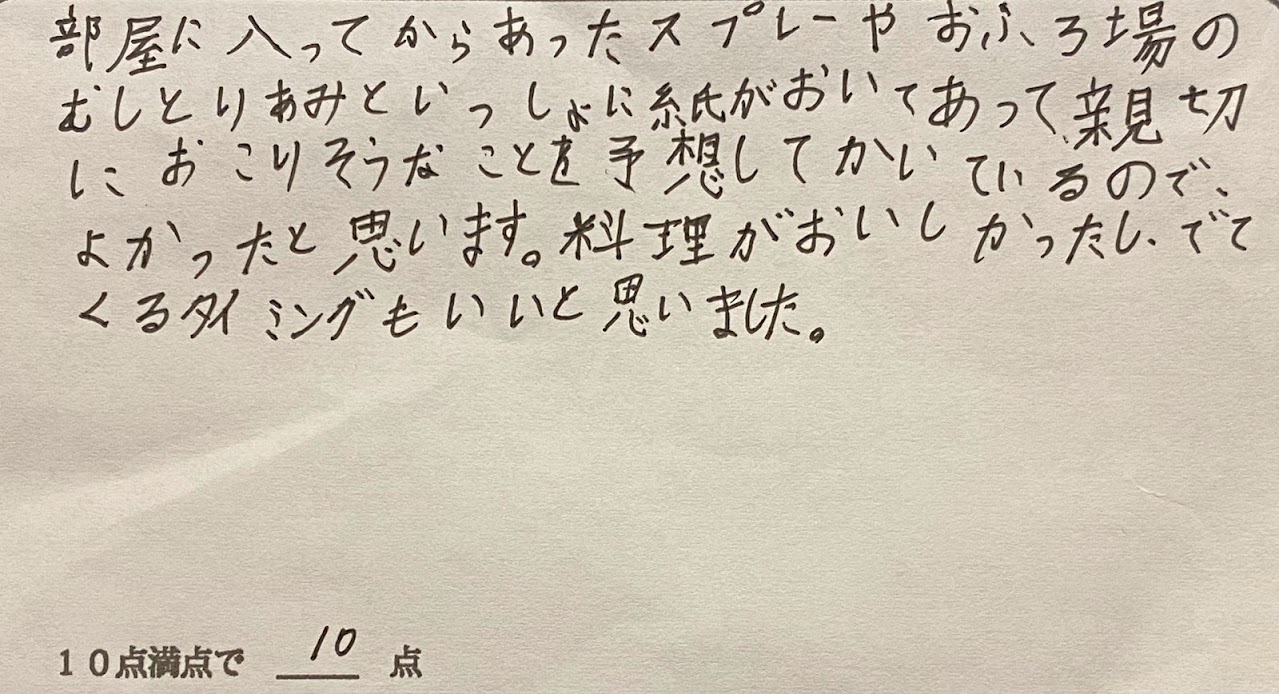 部屋に入ってからあったスプレーやおふろ場の
むしとりあみといっしょに紙がおいてあって親切
におこりそうなことを予想してかいているので、
よかったと思います。料理がおいしかったし、でて
くるタイミングもいいと思いました。
10点満点で 10 点